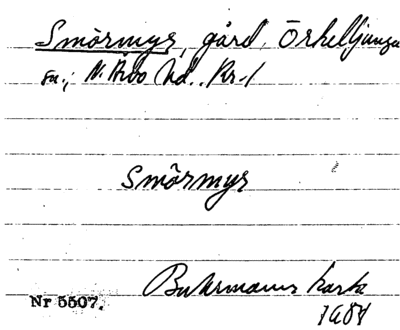 Smörmyr, gård, Örkelljunga
sn.; N. Åsbo hd., Kr-l
Smörmyr
Buhrmanns karta
1684
Nr 5507.